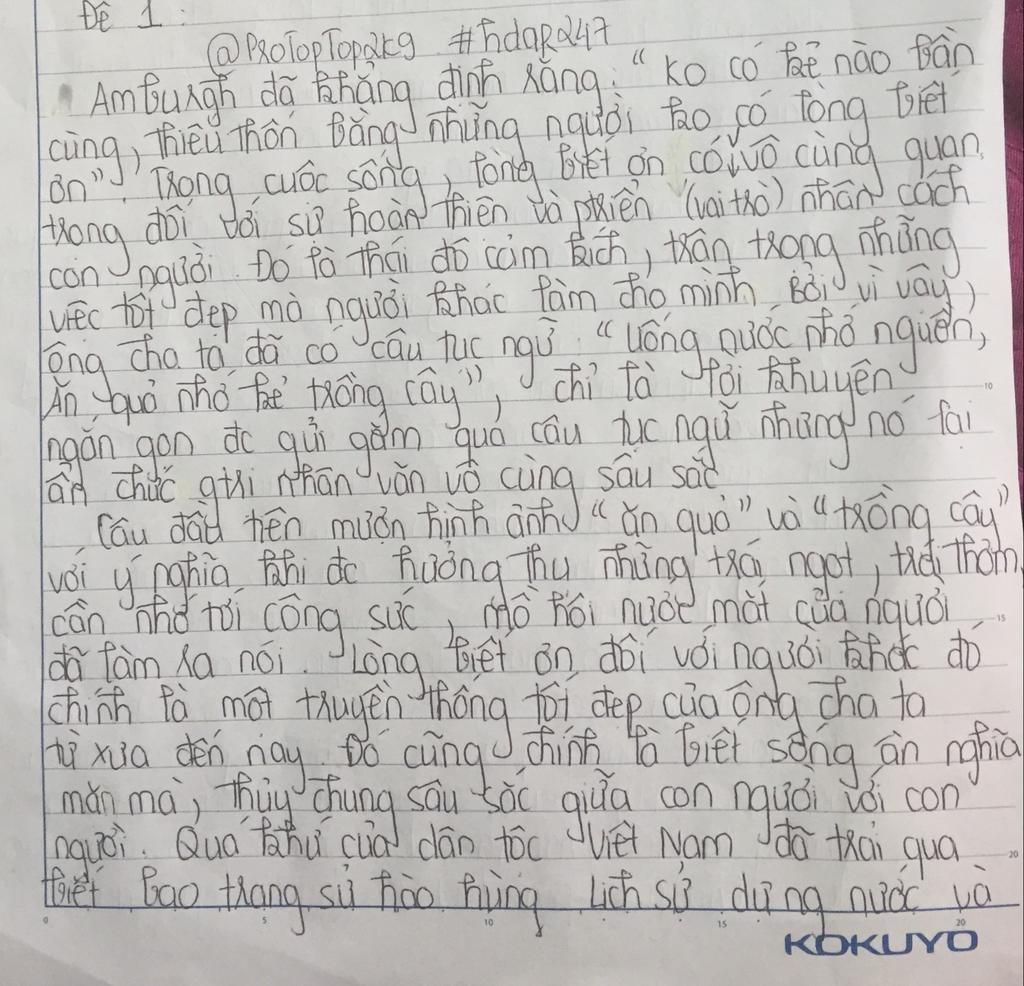 Đề 1:
@ProTopTop2k9 #hdgr247
Amburgh đã khẳng định rằng: "Ko có kẻ nào bần
cùng, thiếu thốn bằng những người ko có lòng biết
ơn". Trong cuộc sống, lòng biết ơn có vô cùng quan
trọng đối với sự hoàn thiện và ptriển (vai trò) nhân cách
con người. Đó là thái độ cảm kích, trân trọng những
việc tốt đẹp mà người khác làm cho mình. Bởi vì vậy,
ông cha ta đã có câu tục ngữ: "Uống nước nhớ nguồn,
Ăn quả nhớ kẻ trồng cây", chỉ là lời khuyên
ngắn gọn đc gửi gắm qua câu tục ngữ nhưng nó lại
ẩn chức gtri nhân văn vô cùng sâu sắc
Câu đầu tiên mượn hình ảnh "ăn quả" và "trồng cây"
với ý nghĩa khi đc hưởng thụ những trái ngọt, trái thơm
cần nhớ tới công sức, mồ hôi nước mắt của người
đã làm ra nói. Lòng biết ơn đối với người khác đó
chính là một truyền thống tốt đẹp của ông cha ta
từ xưa đến nay. Đó cũng chính là biết sống ân nghĩa
mặn mà, thủy chung sâu sắc giữa con người với con
người. Quá khứ của dân tộc Việt Nam đã trải qua
biết bao trang sử hào hùng. Lịch sử dựng nước và
10
15
20
0 5 10 15 20
KOKUYO